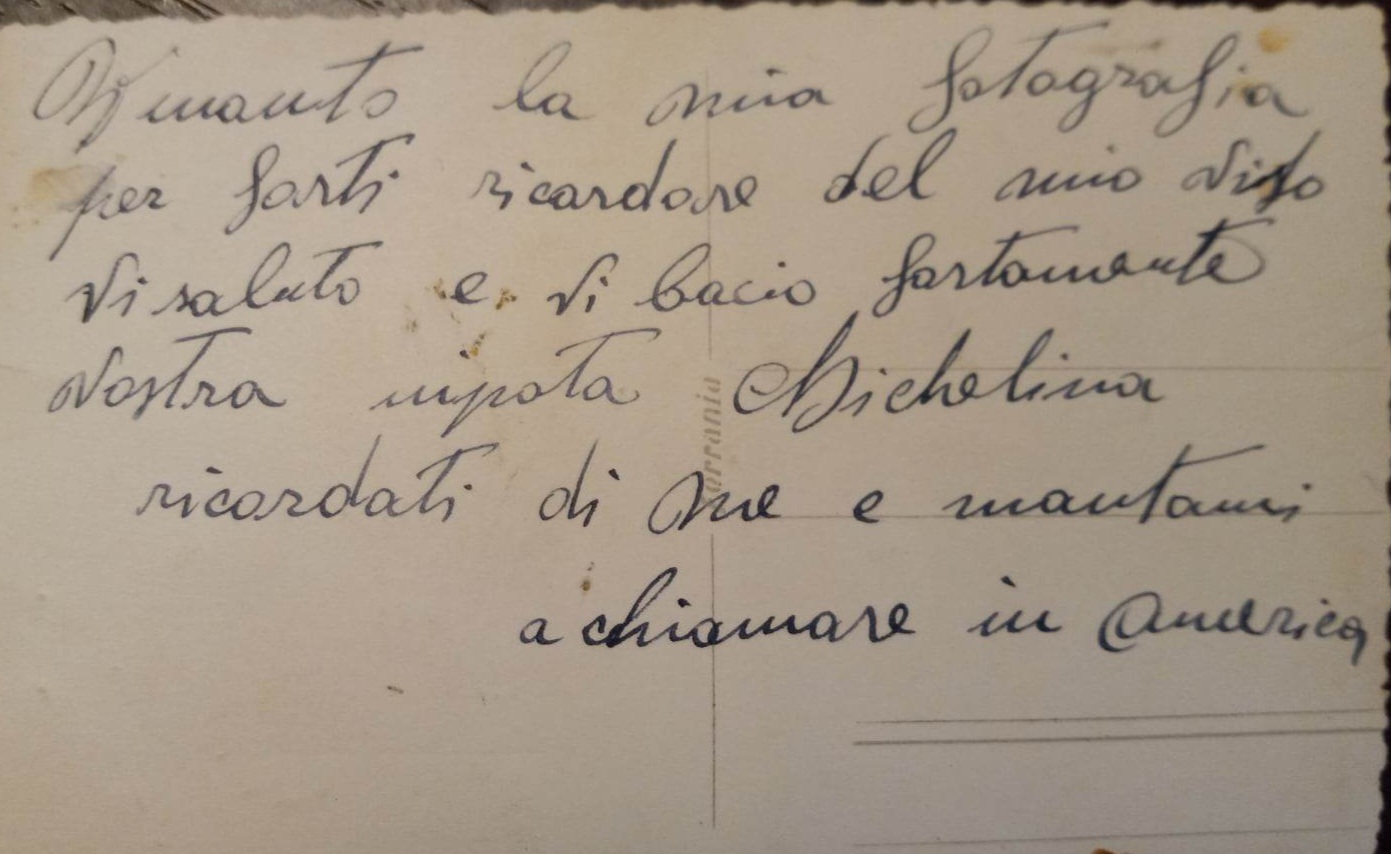 Vi manto la mia fotografia
per farti ricordare del mio viso
vi saluto e vi bacio fortamente
vostra nipota Michelina
ricordati di me e mantami
a chiamare in America
Ferrania